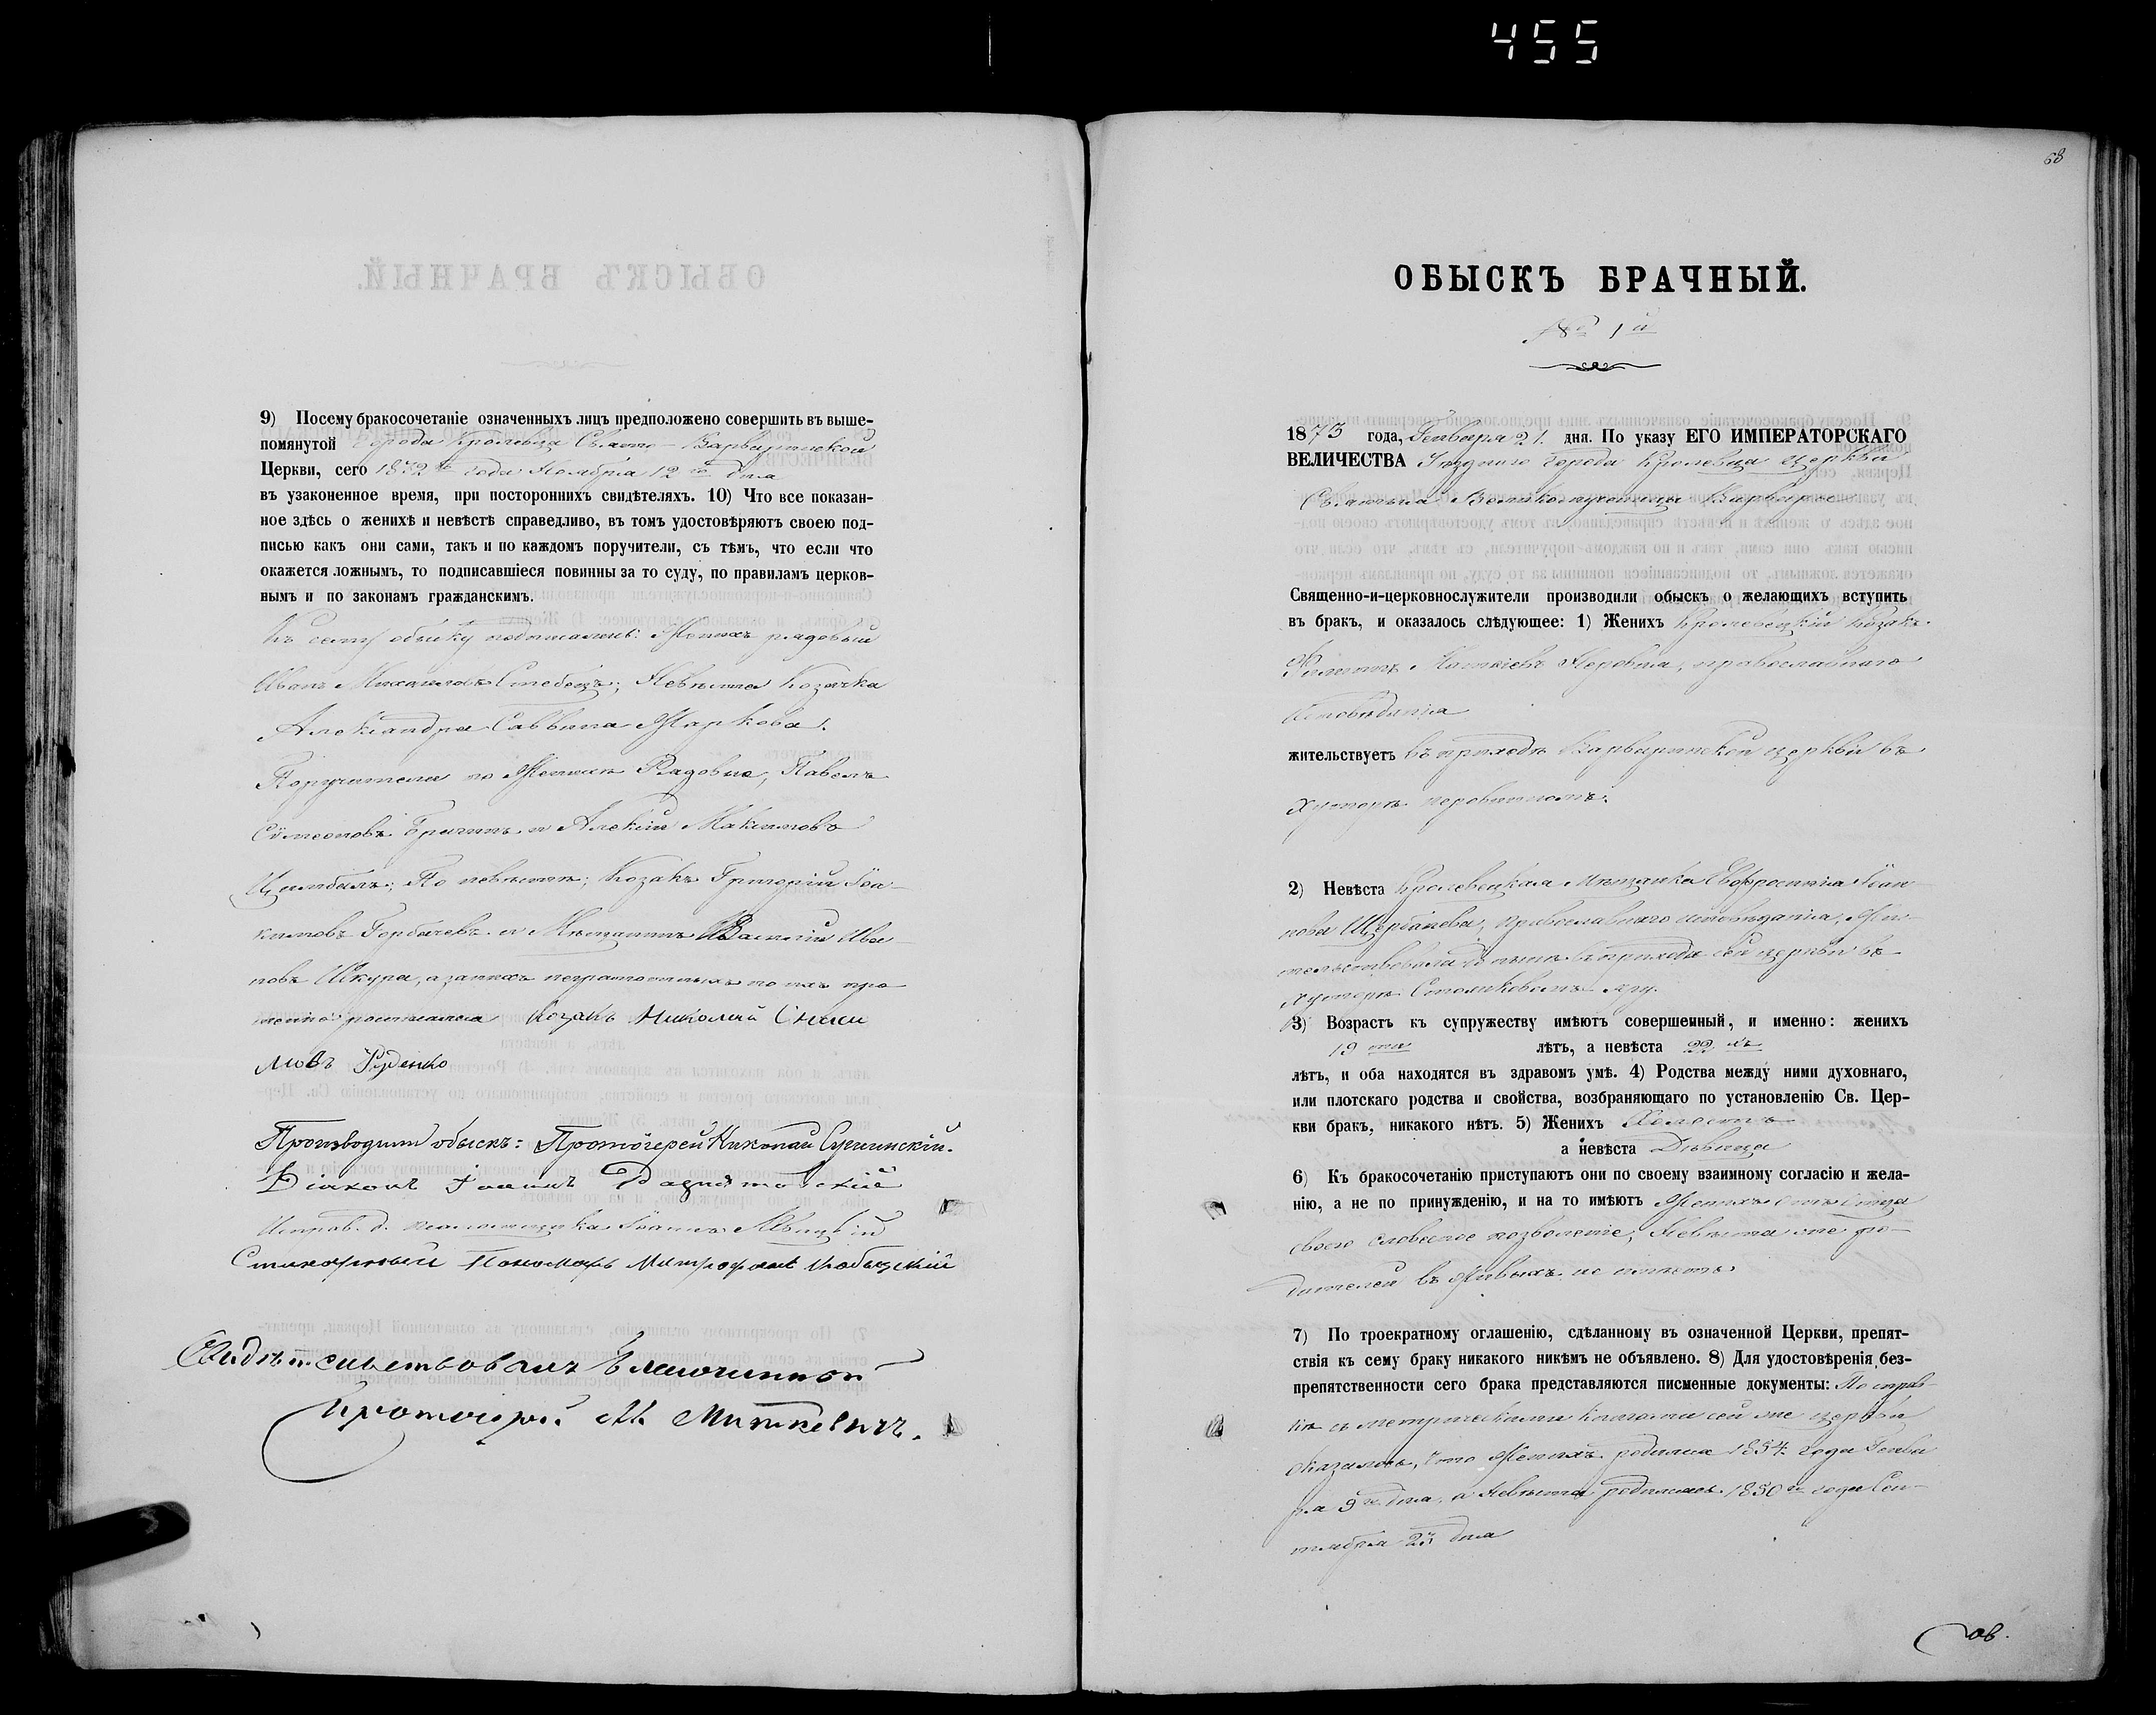 455
9) Посему бракосочетаніе означенныхъ лицъ предположено совершить въ выше-
помянутой города Кролевца Свято-Варваринской
Церкви, сего 1872 года Ноября 12 дня
въ узаконенное время, при постороннихъ свидѣтеляхъ. 10) Что все показан-
ное здѣсь о женихѣ и невѣстѣ справедливо, въ томъ удостовѣряютъ своею под-
писью какъ они сами, такъ и по каждомъ поручители, съ тѣмъ, что если что
окажется ложнымъ, то подписавшіеся повинны за то суду, по правиламъ церков-
нымъ и по законамъ гражданскимъ.
Къ сему обыску подписались: Женихъ рядовый
Иванъ Михайловъ Стебецъ; Невѣста Козачка
Александра Саввина Жаркова.
Поручители по Женихѣ Рядовые, Павелъ
Сѵмеоновъ и Алексій Максимовъ
Цимбалъ; По невѣстѣ; Козакъ Григорій Іоа-
кимовъ Горбачевъ и Мѣщанинъ Василій Ива-
новъ Шкура, а за нихъ неграмотныхъ по ихъ про
шенію росписался Козакъ Николай
мовъ Руденко
Производили обыскъ: Протоіерей Николай Сучинскій.
Діаконъ Іоаннъ
Исправ. д. псаломщика Іоаннъ Львицкій
Стихарный Пономарь Митрофанъ
Свидѣтельствовалъ Благочинной
Протоіерей М. Миткевичъ.
68
ОБЫСКЪ БРАЧНЫЙ.
№ 1й
1873 года, Генваря 21. дня. По указу ЕГО ИМПЕРАТОРСКАГО
ВЕЛИЧЕСТВА Уѣзднаго города Кролевца церкви
Святыя Великомученицы Варвары
Священно-и-церковнослужители производили обыскъ о желающихъ вступить
въ бракъ, и оказалось слѣдующее: 1) Женихъ Кролевецкій Козакъ
Филиппъ Перовна, православнаго
исповѣданія
жительствуетъ въ приходѣ Варваринской церкви въ
Хуторѣ
2) Невѣста Кролевецкая Мѣщанка Евфросинія Іоан
нова Щербакова, православнаго исповѣданія, Жи-
тельствовала до нынѣ въ приходѣ сей церкви въ
хуторѣ Яру.
3) Возрастъ къ супружеству имѣютъ совершенный, и именно: женихъ
19 ти лѣтъ, а невѣста 22 хъ
лѣтъ, и оба находятся въ здравомъ умѣ. 4) Родства между ними духовнаго,
или плотскаго родства и свойства, возбраняющаго по установленію Св. Цер-
кви бракъ, никакого нѣтъ. 5) Женихъ Холостъ
а невѣста Дѣвица
6) Къ бракосочетанію приступаютъ они по своему взаимному согласію и жела-
нію, а не по принужденію, и на то имѣютъ Женихъ отъ отца
своего словесное позволеніе; Невѣста же ро-
дителей въ живыхъ не имѣетъ.
7) По троекратному оглашенію, сдѣланному въ означенной Церкви, препят-
ствія къ сему браку никакого никѣмъ не объявлено. 8) Для удостовѣренія без-
препятственности сего брака представляются писменные документы: По справ-
кѣ съ метрическими книгами сей же церкви
оказалось, что Женихъ родился 1854 года Генва
ря 9 дня, а Невѣста родилась 1850 года Сен-
тября 23 дня
об.